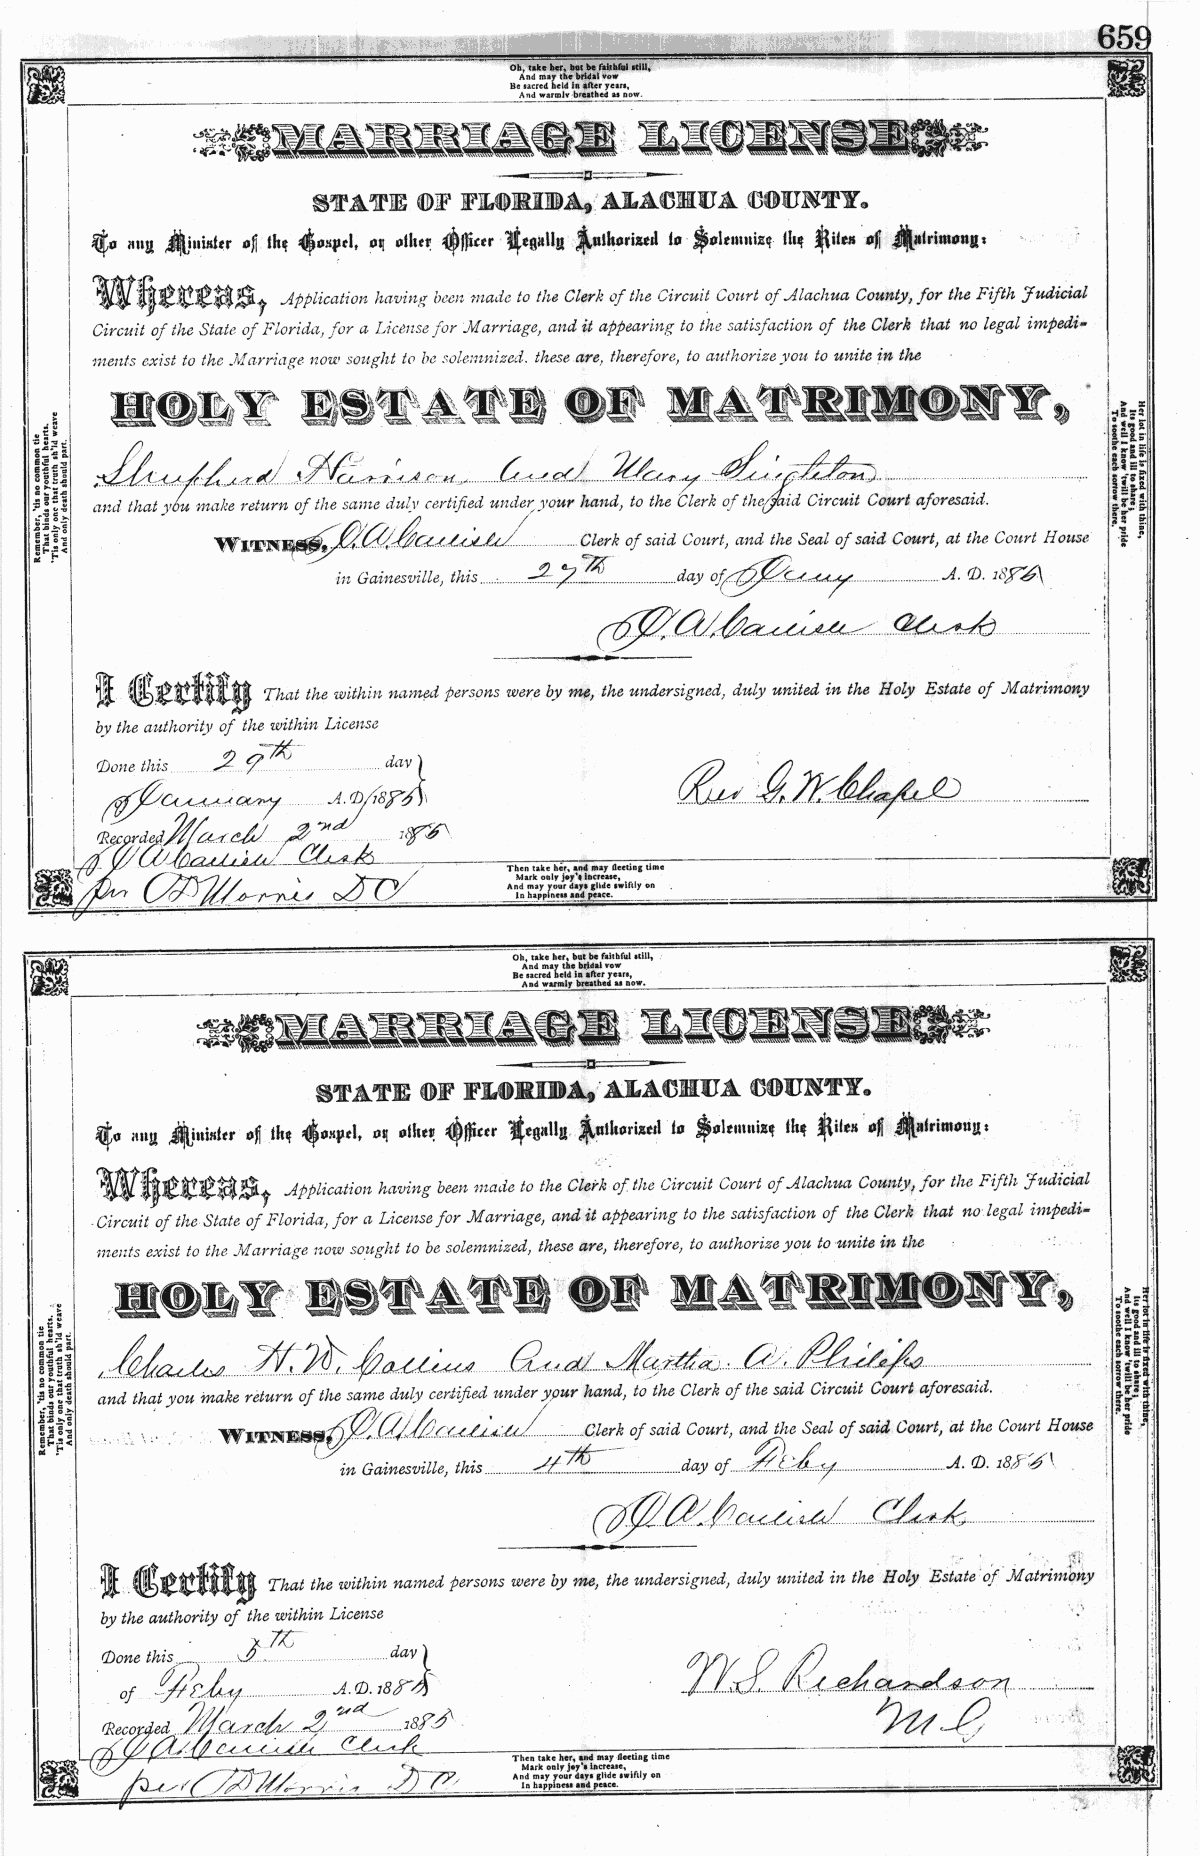 659
Oh, take her, but be faithful still,
And may the bridal vow
Be sacred held in after years,
And warmly breathed as now.
MARRIAGE LICENSE
STATE OF FLORIDA, ALACHUA COUNTY.
To any Minister of the Gospel, or other Officer Legally Authorized to Solemnize the Rites of Matrimony:
Whereas, Application having been made to the Clerk of the Circuit Court of Alachua County, for the Fifth Judicial
Circuit of the State of Florida, for a License for Marriage, and it appearing to the satisfaction of the Clerk that no legal impedi-
ments exist to the Marriage now sought to be solemnized. these are, therefore, to authorize you to unite in the
HOLY ESTATE OF MATRIMONY,
Shepherd Harrison and Mary Singleton
and that you make return of the same duly certified under your hand, to the Clerk of the said Circuit Court aforesaid.
WITNESS, J. A. Carlisle Clerk of said Court, and the Seal of said Court, at the Court House
in Gainesville, this 27th day of Jany A. D. 1885
J. A. Carlisle Clerk
I Certify That the within named persons were by me, the undersigned, duly united in the Holy Estate of Matrimony
by the authority of the within License
Done this 29th day
January A.D. 1885
Rev G. W. Chapel
Recorded March 2nd 1885
J A Carlisle Clerk
per O D Morris D C
Remember, 'tis no common tie
That binds our youthful hearts,
'Tis only one that truth sh'ld weave
And only death should part.
Her lot in life is fixed with thine,
Its good and ill to share;
And well I know 'twill be her pride
To soothe each sorrow there.
Then take her, and may fleeting time
Mark only joy's increase,
And may your days glide swiftly on
In happiness and peace.
Oh, take her, but be faithful still,
And may the bridal vow
Be sacred held in after years,
And warmly breathed as now.
MARRIAGE LICENSE
STATE OF FLORIDA, ALACHUA COUNTY.
To any Minister of the Gospel, or other Officer Legally Authorized to Solemnize the Rites of Matrimony:
Whereas, Application having been made to the Clerk of the Circuit Court of Alachua County, for the Fifth Judicial
Circuit of the State of Florida, for a License for Marriage, and it appearing to the satisfaction of the Clerk that no legal impedi-
ments exist to the Marriage now sought to be solemnized, these are, therefore, to authorize you to unite in the
HOLY ESTATE OF MATRIMONY,
Charles H. W. Collins and Martha A. Philips
and that you make return of the same duly certified under your hand, to the Clerk of the said Circuit Court aforesaid.
WITNESS, J. A. Carlisle Clerk of said Court, and the Seal of said Court, at the Court House
in Gainesville, this 4th day of Feby A. D. 1885
J. A. Carlisle Clerk
I Certify That the within named persons were by me, the undersigned, duly united in the Holy Estate of Matrimony
by the authority of the within License
Done this 5th day
of Feby A.D. 1885
W. S. Richardson
M G
Recorded March 2nd 1885
J A. Carlisle Clerk
per O D Morris D C.
Remember, 'tis no common tie
That binds our youthful hearts.
'Tis only one that truth sh'ld weave
And only death should part.
Her lot in life is fixed with thine,
Its good and ill to share;
And well I know 'twill be her pride
To soothe each sorrow there.
Then take her, and may fleeting time
Mark only joy's increase,
And may your days glide swiftly on
In happiness and peace.